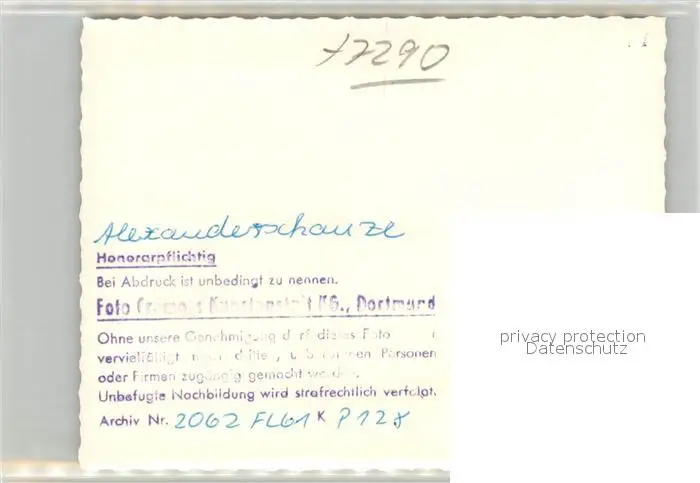 77290
Alexanderschanze
Honorarpflichtig
Bei Abdruck ist unbedingt zu nennen.
Foto Cramers Kunstanstalt KG., Dortmund
Ohne unsere Genehmigung darf dieses Foto
vervielfältigt Personen
oder Firmen zugängig gemacht werden.
Unbefugte Nachbildung wird strafrechtlich verfolgt.
Archiv Nr. 2062 FL61 K P128
privacy protection
Datenschutz